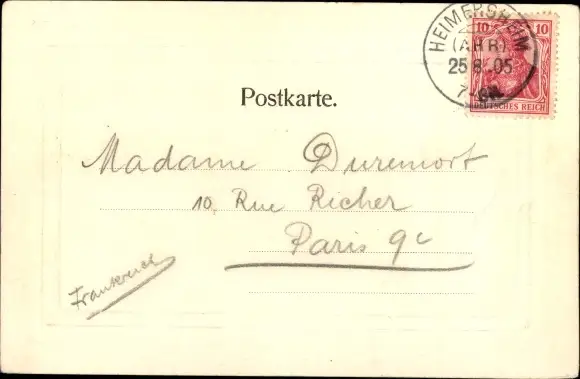 HEIMERSHEIM
(AHR)
25 8 05
10 10
DEUTSCHES REICH
Postkarte.
Madame Duremort
10, Rue Richer
Paris 9e
Frankreich